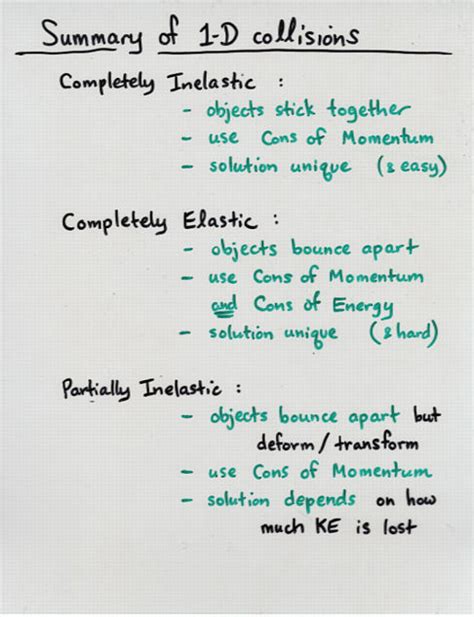 Summary of 1-D collisions
Completely Inelastic :
- objects stick together
- use Cons of Momentum
- solution unique (& easy)
Completely Elastic :
- objects bounce apart
- use Cons of Momentum
and Cons of Energy
- solution unique (& hard)
Partially Inelastic :
- objects bounce apart but
deform / transform
- use Cons of Momentum
- solution depends on how
much KE is lost